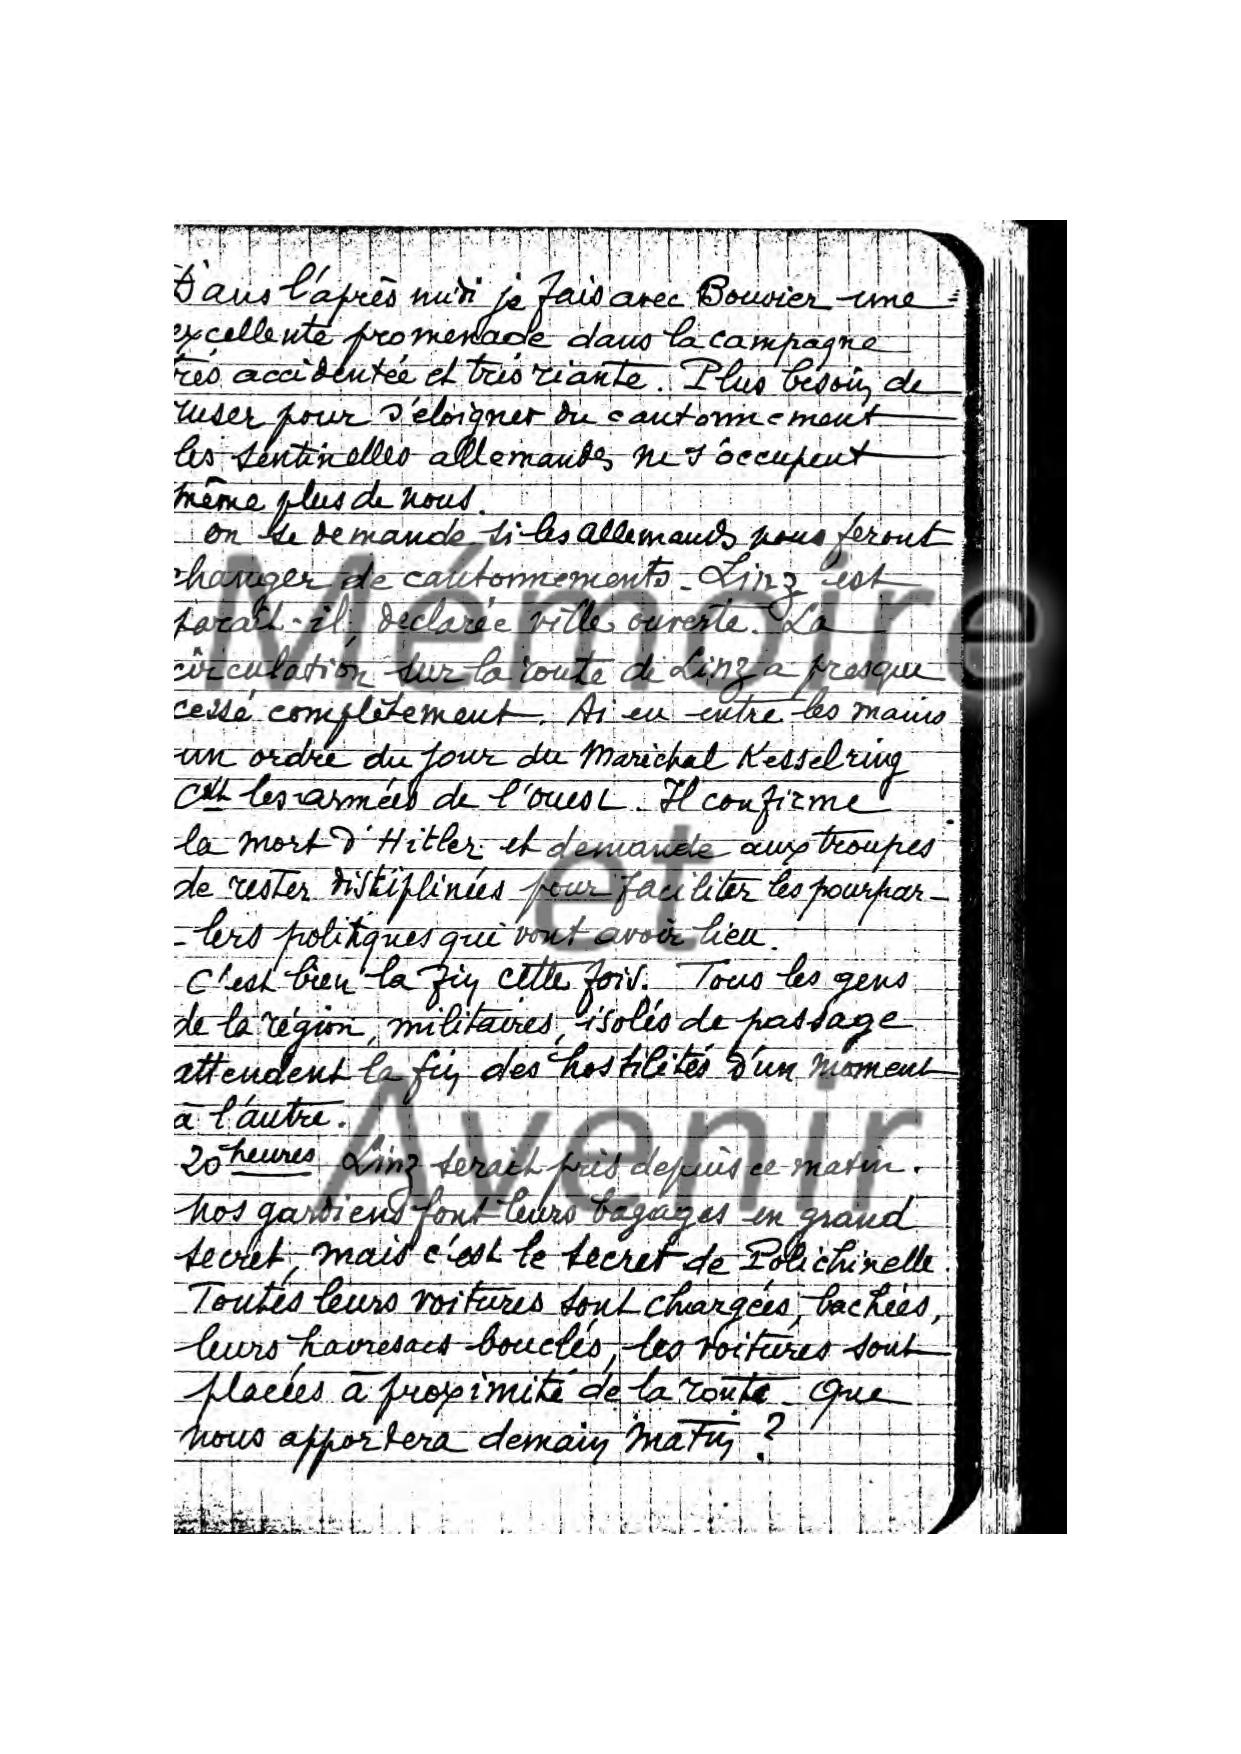 Dans l'après midi je fais avec Bouvier une
excellente promenade dans la campagne
très accidentée et très riante. Plus besoin de
ruser pour s'éloigner du cantonnement
les sentinelles allemandes ne s'occupent
même plus de nous.
on se demande si les allemands nous feront
changer de cantonnements - Linz est
parait-il, déclarée ville ouverte. La
circulation sur la route de Linz a presque
cessé complètement. Ai eu entre les mains
un ordre du jour du Maréchal Kesselring
Cdt les armées de l'ouest. Il confirme
la mort d'Hitler et demande aux troupes
de rester disciplinées pour faciliter les pourpar-
-lers politiques qui vont avoir lieu.
C'est bien la fin cette fois. Tous les gens
de la région, militaires, isolés de passage
attendent la fin des hostilités d'un moment
à l'autre.
20 heures Linz serait pris depuis ce matin.
Nos gardiens font leurs bagages en grand
secret, mais c'est le secret de Polichinelle.
Toutes leurs voitures sont chargées, bachées,
leurs havresacs bouclés, les voitures sont
placées à proximité de la route. Que
nous apportera demain matin ?
Mémoire
et
Avenir